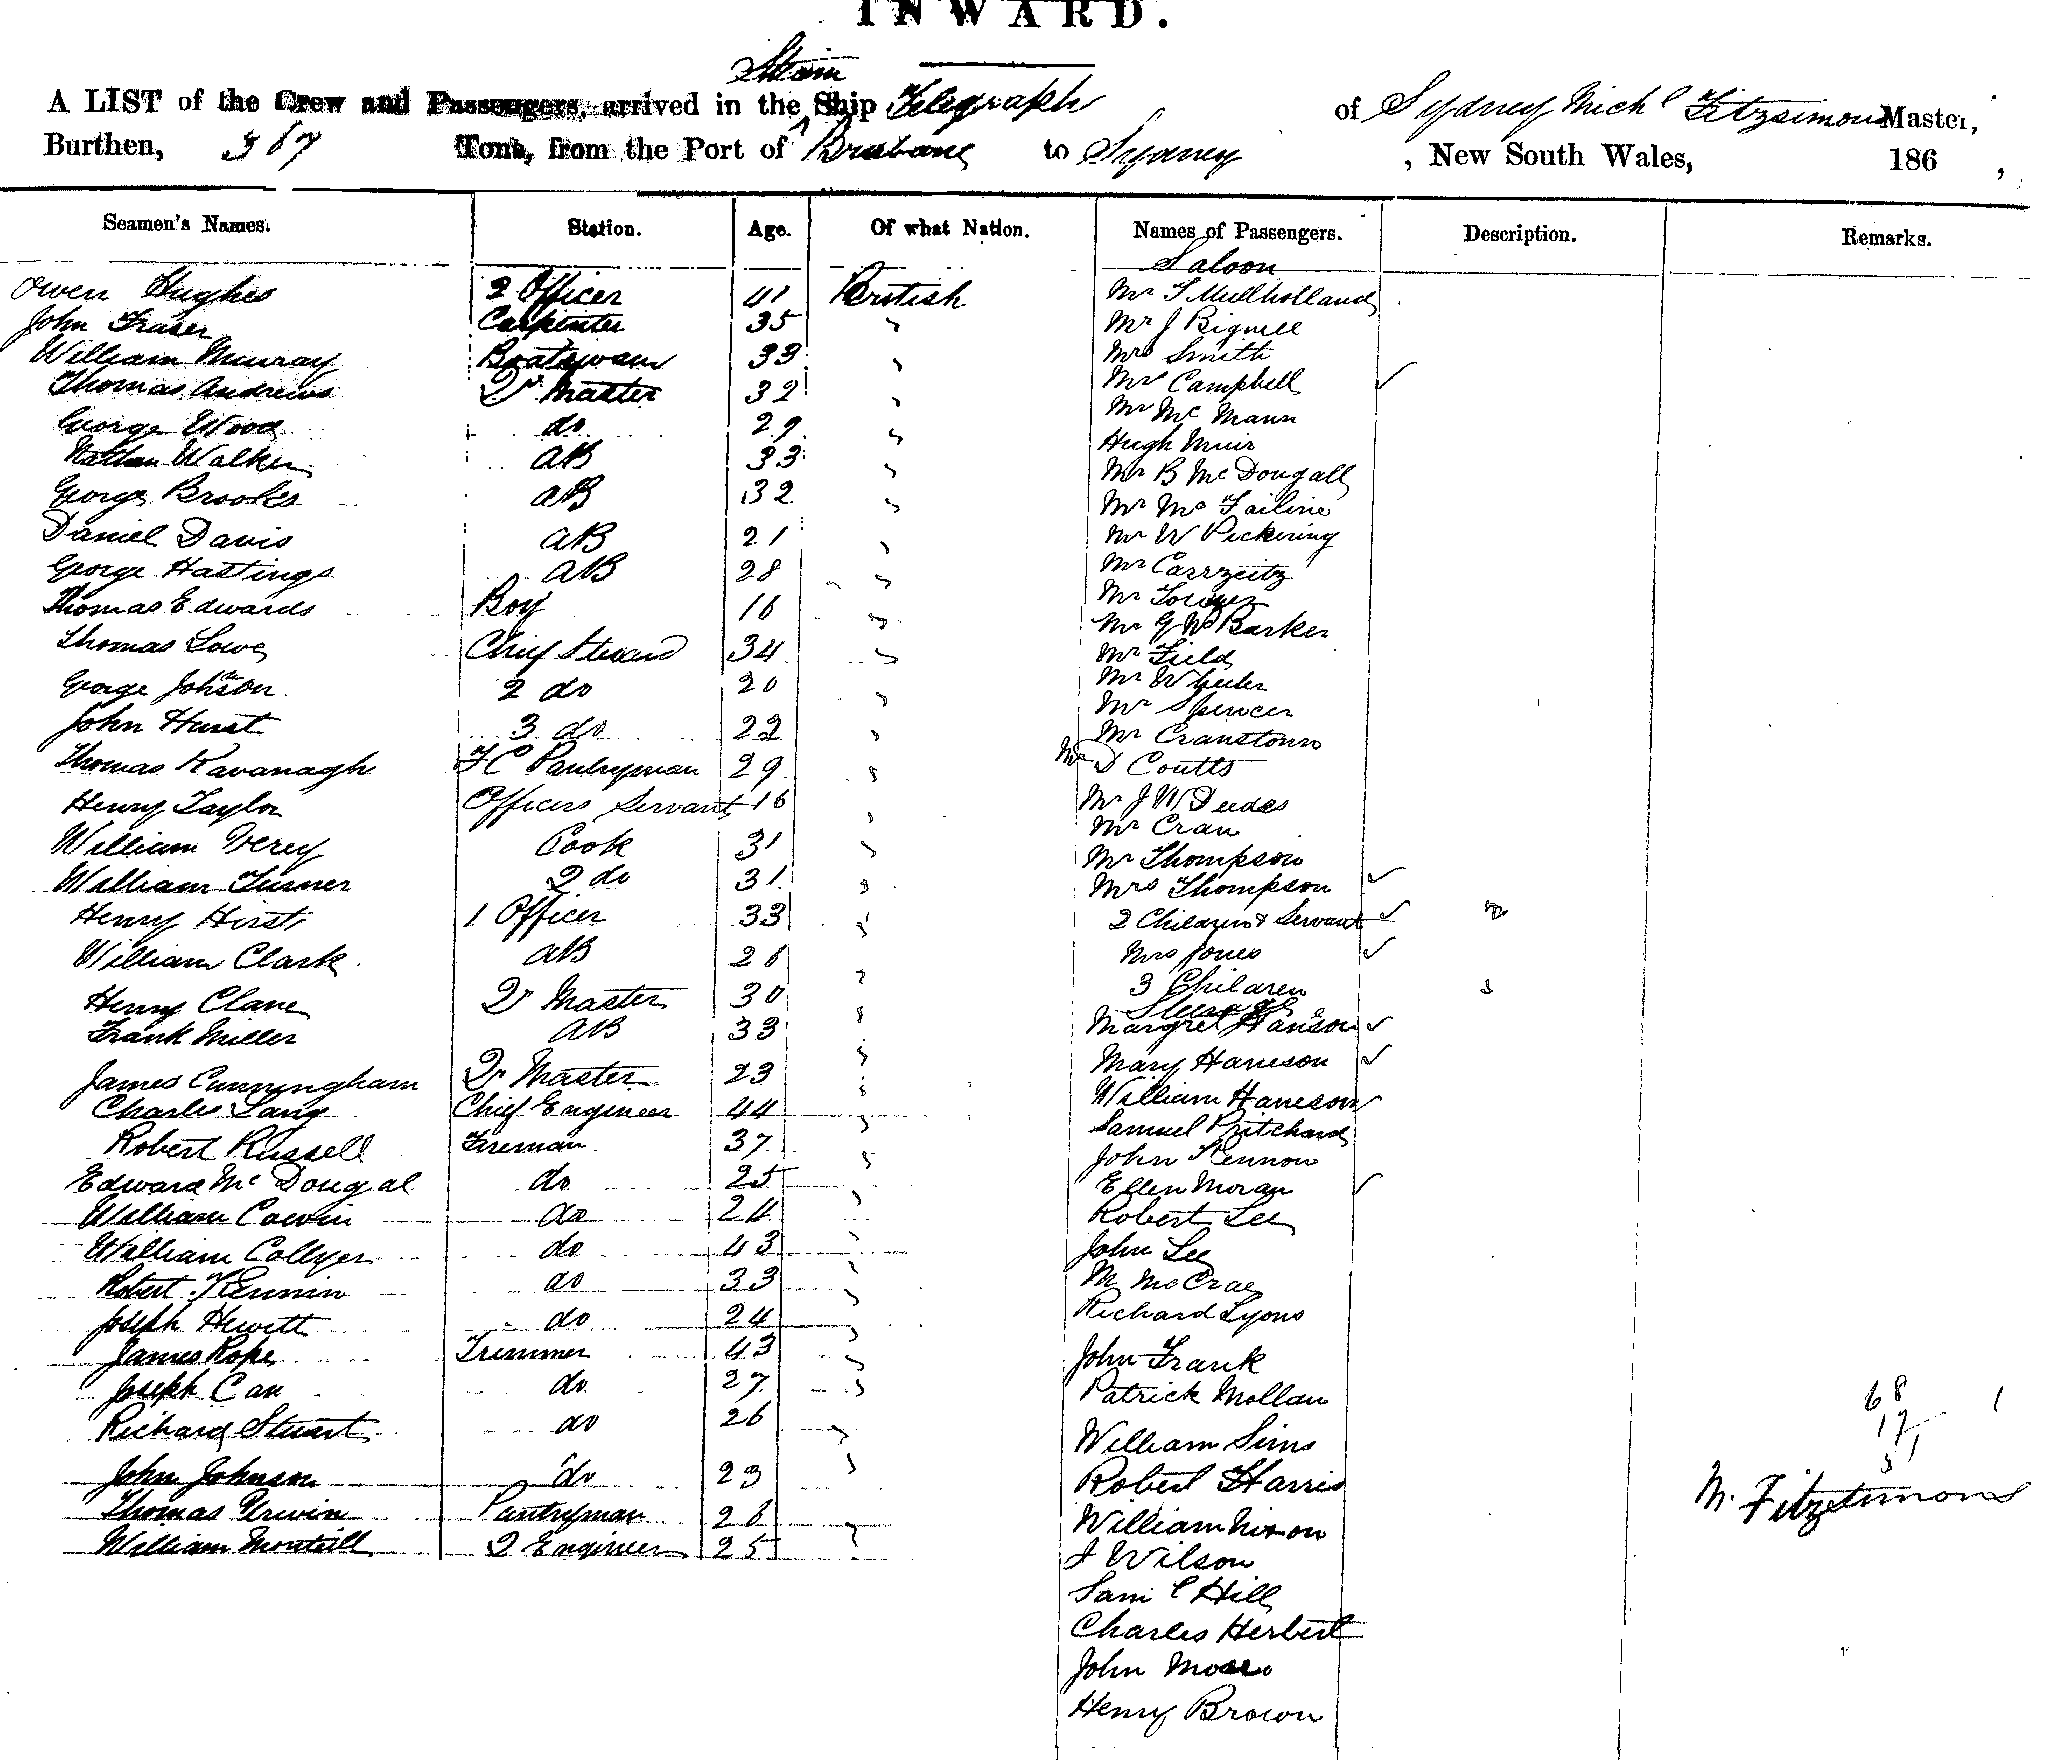 INWARD.
Steam
A LIST of the Crew and Passengers, arrived in the Ship Telegraph of Sydney Mich l Fitzsimons Master,
Burthen, 367 Tons, from the Port of Brisbane to Sydney, New South Wales, 186 ,
Seamen's Names. Station. Age. Of what Nation. Names of Passengers. Description. Remarks.
Saloon
Owen Hughes 2 Officer 41 British Mr T Mullholland
John Fraser Carpenter 35 " Mr J Bignell
William Murray Boatswain 33 " Mrs Smith
Thomas Andrews Qr Master 32 " Mr Campbell ✓
George Wood do 29 " Mr Mc Mann
Nathan Walker AB 33 " Hugh Muir
George Brookes AB 32 " Mr B McDougall
Daniel Davis AB 21 " Mr Mc Failine
George Hastings AB 28 " Mr W Pickering
Thomas Edwards Boy 16 " Mr Carrzeitz
Thomas Lowe Chief Steward 34 " Mr
George Johnson 2 do 20 " Mr G W Barker
John Hurst 3 do 22 " Mr Field
Thomas Kavanagh F C Pantryman 29 " Mr Wheeler
Henry Taylor Officers Servant 16 " Mr Spencer
William Verey Cook 31 " Mr Cranstown
William Turner 2 do 31 " Mr D Coutts
Henry Hirst 1 Officer 33 " Mr J W Deedes
William Clark AB 26 " Mr Cran
Henry Clane Qr Master 30 " Mr Thompson
Frank Miller AB 33 " Mrs Thompson ✓
James Cunningham Qr Master 23 " 2 Children & Servant ✓
Charles Lang Chief Engineer 44 " Mrs Jones ✓
Robert Russell Fireman 37 " 3 Children 3
Steerage
Edward McDougal do 25 " Margret Hanson ✓
William Cowin do 24 " Mary Haneson ✓
William Collyer do 43 " William Haneson ✓
Robert Kennin do 33 " Samuel Pritchard
Joseph Hewitt do 24 " John Kennon
James Rope Trimmer 43 " Ellen Moran ✓
Joseph Carr do 27 " Robert Lee
Richard Stuart do 26 " John Lee
John Johnson do 23 " M McCrae
Thomas Urwin Pantryman 28 Richard Lyons
William 2 Engineer 25 " John Frank
Patrick Mollan
William Sims
Robert Harris
William Nixon
J Wilson
Sam l Hill
Charles Herbert
John Moses
Henry Brown
68 1
17
M. Fitzsimons